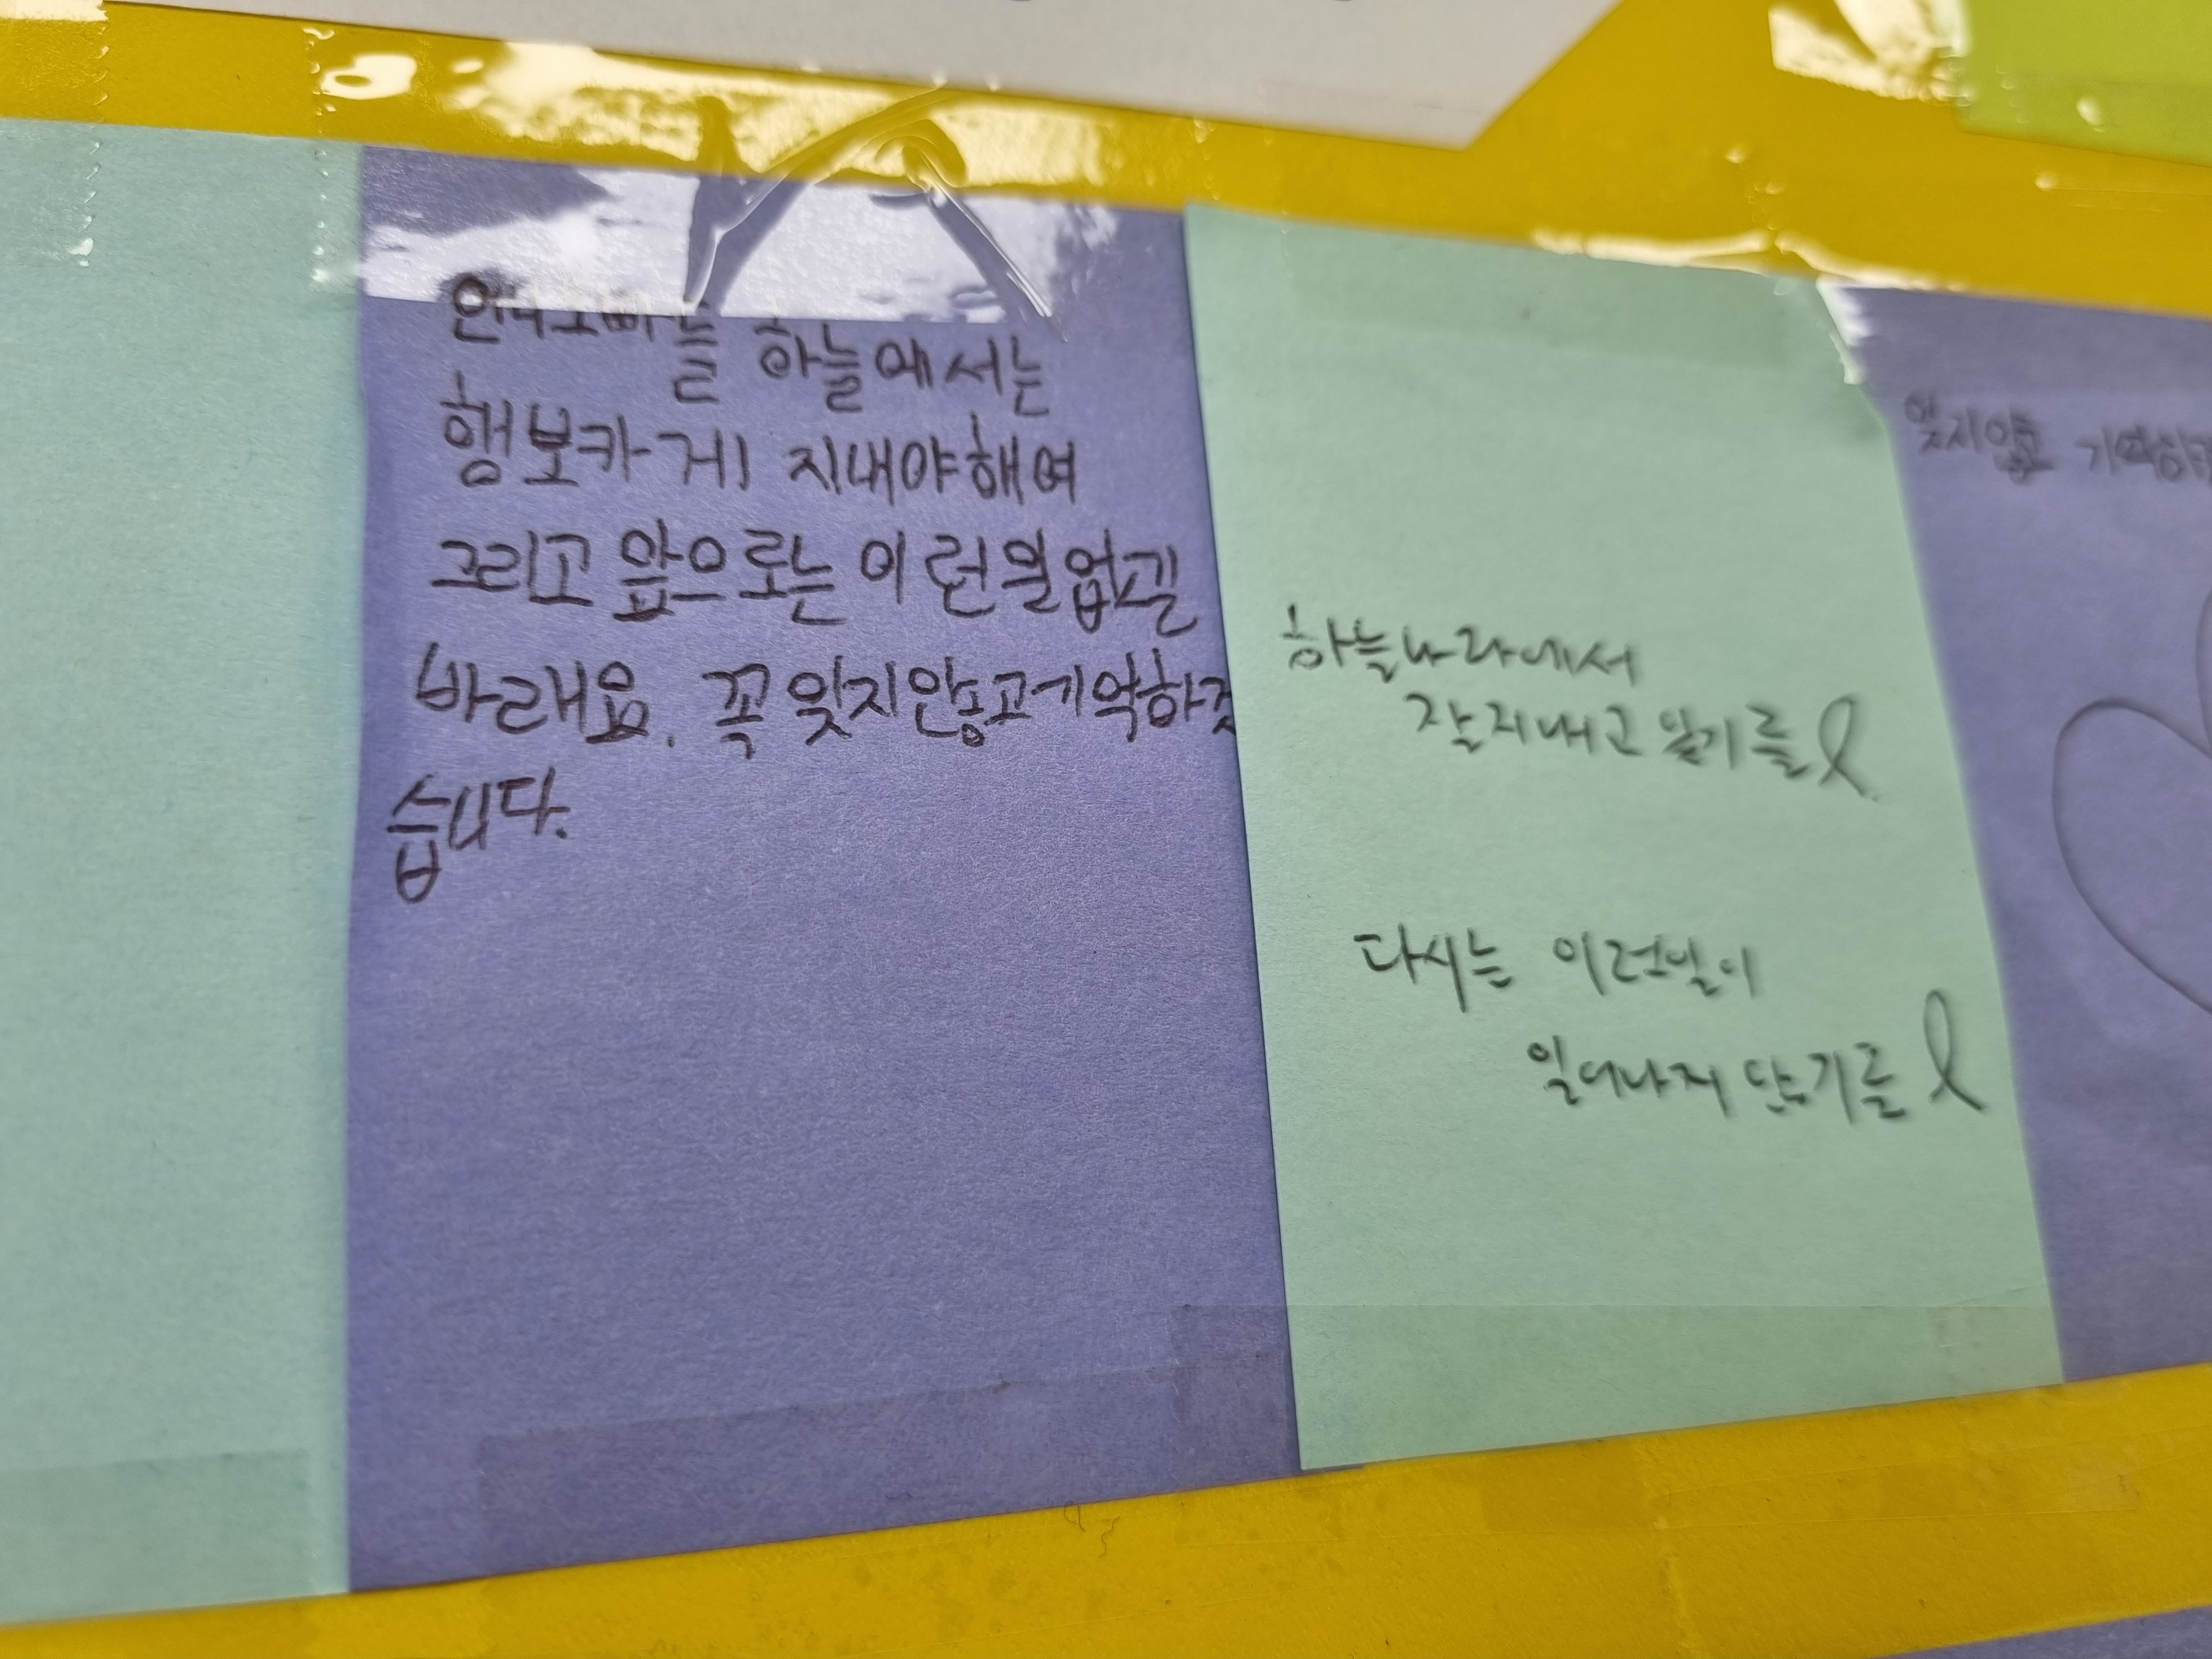 언니오빠들 하늘에서는
행보카게! 지내야해여
그리고 앞으로는 이런일없길
바래요. 꼭 잊지안항고기억하겟
습니다.
하늘나라에서
잘 지내고 있기를
다시는 이런일이
일어나지 않기를
잊지않고 기억하